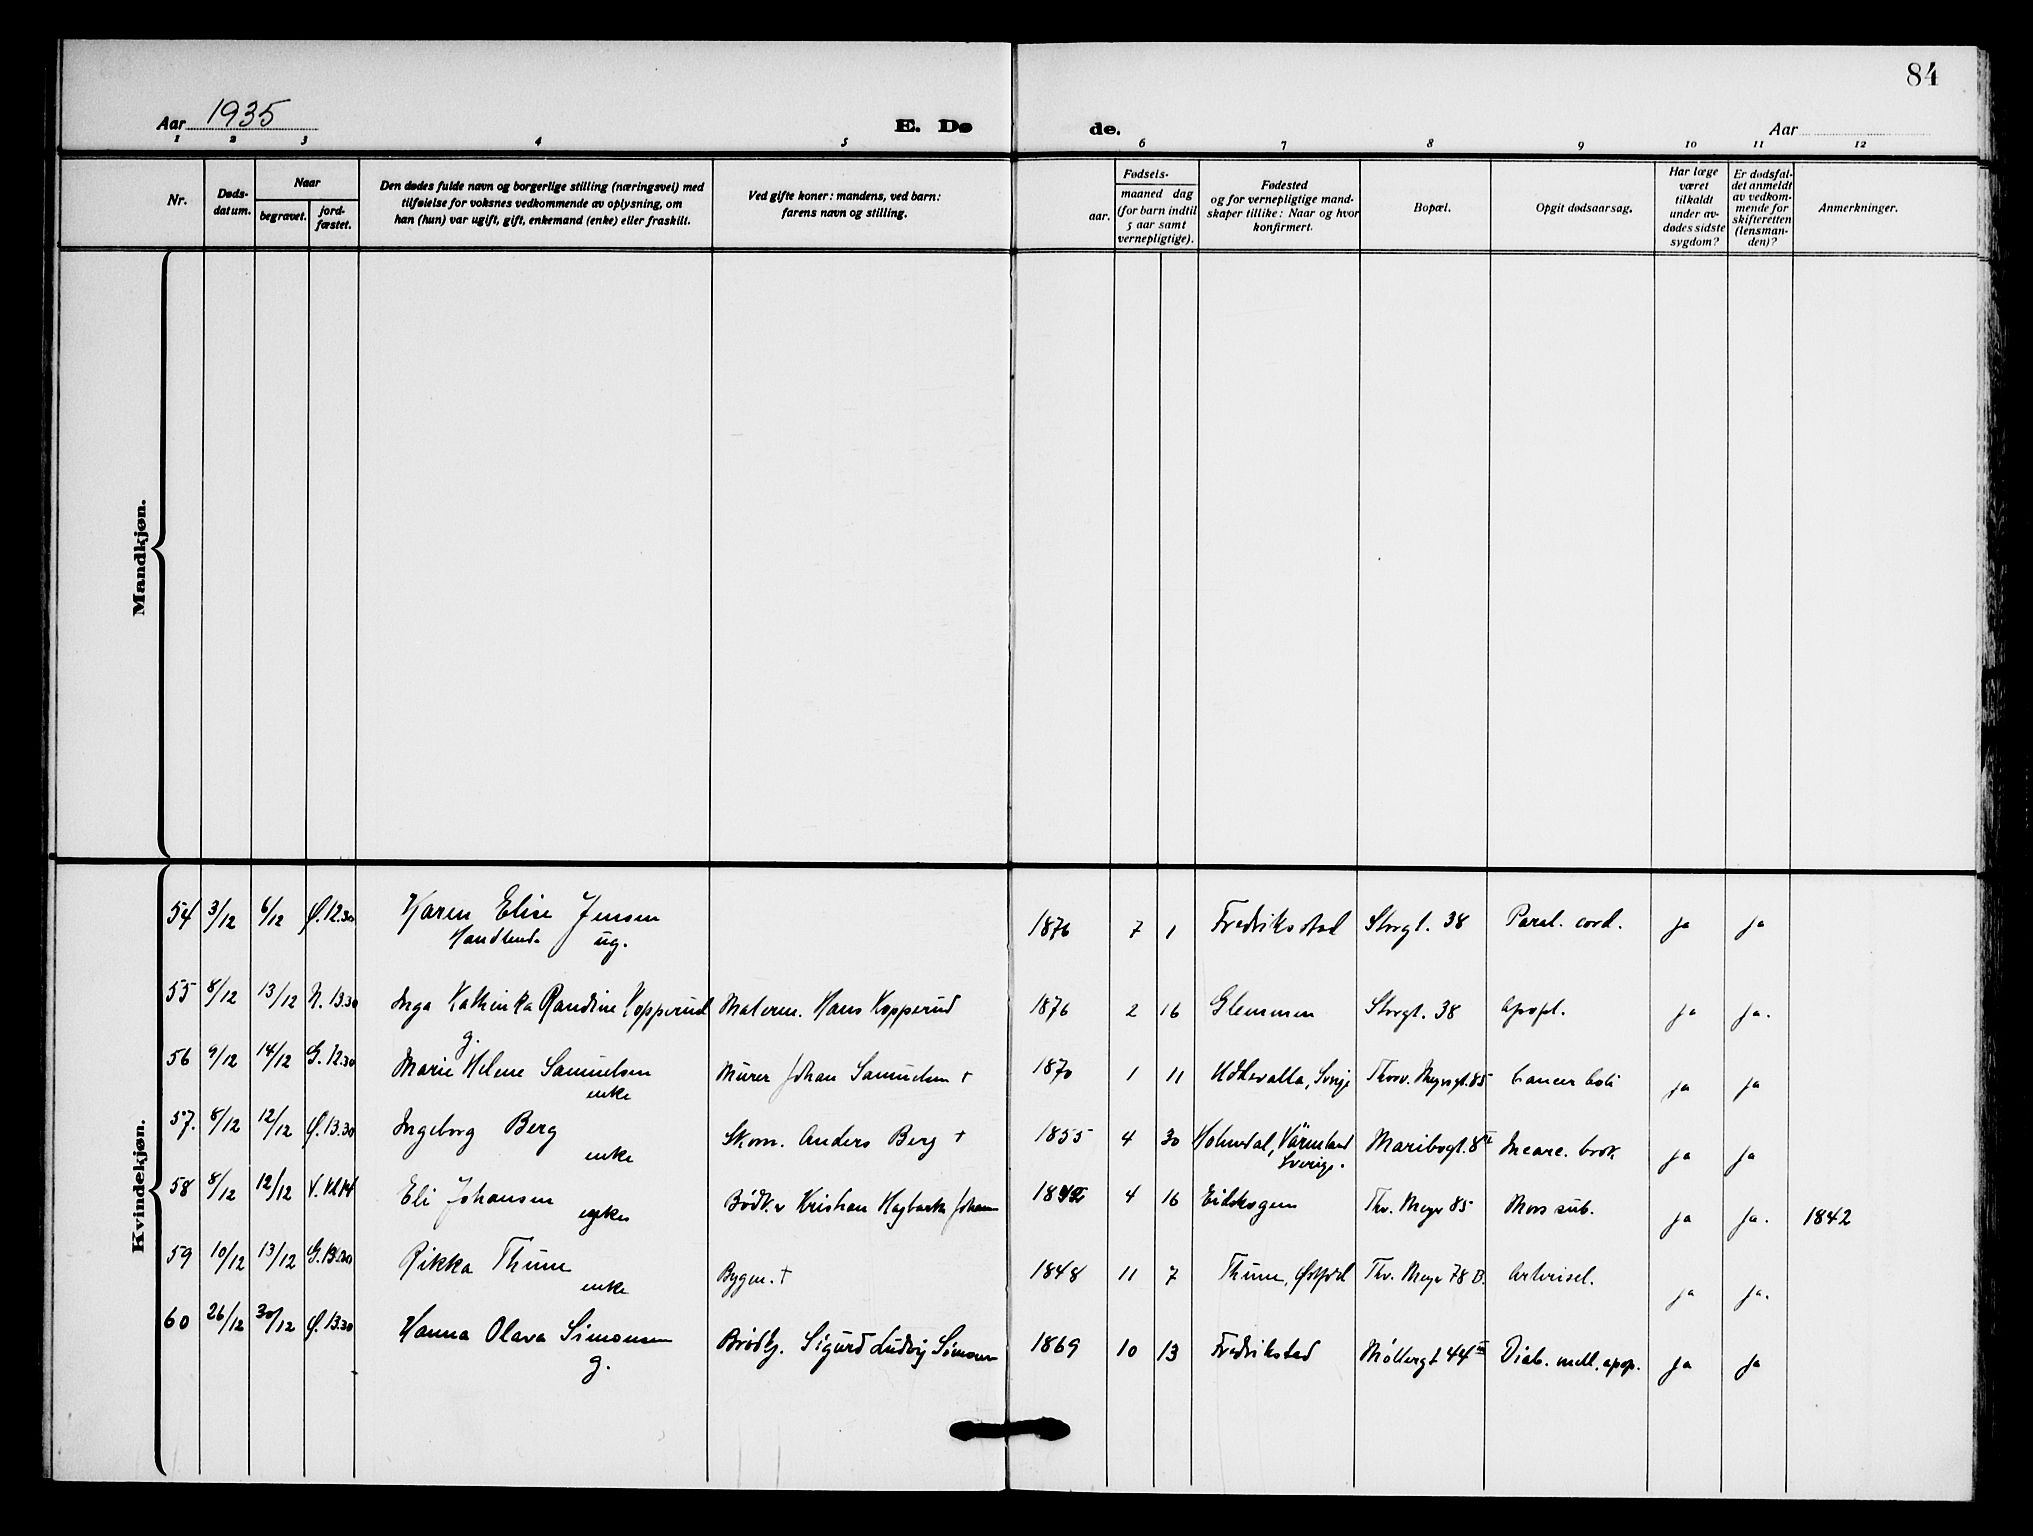 84
Aar 1935 E. Dø de. Aar
1 2 3 4 5 6 7 8 9 10 11 12
Nr.
Døds-
datum.
Naar
begravet.
jord-
fæstet.
Den dødes fulde navn og borgerlige stilling (næringsvei) med
tilføielse for voksnes vedkommende av oplysning, om
han (hun) var ugift, gift, enkemand (enke) eller fraskilt.
Ved gifte koner: mandens, ved barn:
farens navn og stilling.
Fødsels-
aar.
maaned dag
(for barn indtil
5 aar samt
vernepligtige).
Fødested
og for vernepligtige mand-
skaper tillike: Naar og hvor
konfirmert.
Bopæl.
Opgit dødsaarsag.
Har læge
været
tilkaldt
under av-
dødes sidste
sygdom?
Er dødsfal-
det anmeldt
av vedkom-
mende for
skifteretten
(lensman-
den)?
Anmerkninger.
Mandkjøn.
Kvindekjøn.
54 3/12 6/12 Ø. 12.30 Karen Elise Jensen 1876 7 1 Fredrikstad Storgt. 38 Paral. cord. ja ja
ug.
55 8/12 13/12 N. 13.30 Inga Kathinka Randine Kopperud Malerm. Hans Kopperud 1876 2 16 Glemmen Storgt. 38 Apopl. ja ja.
g.
56 9/12 14/12 G. 12.30 Marie Helene Samuelsen Murer Johan Samuelsen + 1870 1 11 Uddevalla, Sverige Thorv. Meyersgt. 85 Cancer coli ja ja
enke
57. 8/12 12/12 Ø. 13.30 Ingeborg Berg Skom. Anders Berg + 1855 4 30 Holmedal, Värmland Maribogt. 8 Incarc. brok ja ja
enke Sverige.
58 8/12 12/12 V. Eli Johansen Kristian 4 16 Eidskogen Thv. Meyer 85 Mors sub. ja ja. 1842
enke
59 10/12 13/12 G. 13.30 Rikka Thune Bygm. † 1848 11 7 Thune, Østfold Thv. Meyer 78 B. Arteriscl. ja ja.
enke
60 26/12 30/12 Ø. 13.30 Hanna Olava Simonsen Brødkj. Sigurd Ludvig Simonsen 1869 10 13 Fredrikstad Møllergt 44 III Diab. mell. apop. ja ja
g.